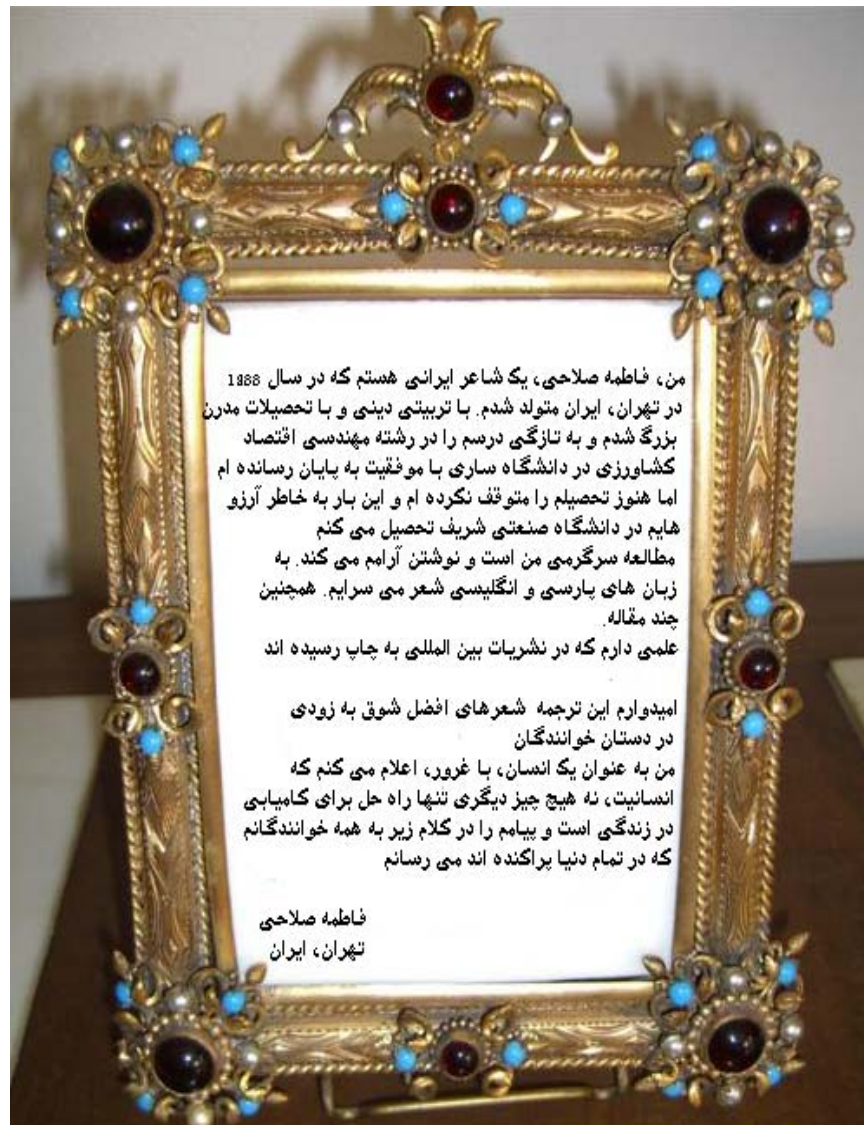 من، فاطمه صلاحی، یک شاعر ایرانی هستم که در سال 1988
در تهران، ایران متولد شدم. با تربیتی دینی و با تحصیلات مدرن
بزرگ شدم و به تازگی درسم را در رشته مهندسی اقتصاد
کشاورزی در دانشگاه ساری با موفقیت به پایان رسانده ام
اما هنوز تحصیلم را متوقف نکرده ام و این بار به خاطر آرزو
هایم در دانشگاه صنعتی شریف تحصیل می کنم
مطالعه سرگرمی من است و نوشتن آرامم می کند. به
زبان های پارسی و انگلیسی شعر می سرایم. همچنین
چند مقاله.
علمی دارم که در نشریات بین المللی به چاپ رسیده اند
امیدوارم این ترجمه شعرهای افضل شوق به زودی
در دستان خوانندگان
من به عنوان یک انسان، با غرور، اعلام می کنم که
انسانیت، نه هیچ چیز دیگری تنها راه حل برای کامیابی
در زندگی است و پیامم را در کلام زیر به همه خوانندگانم
که در تمام دنیا پراکنده اند می رسانم
فاطمه صلاحی
تهران، ایران